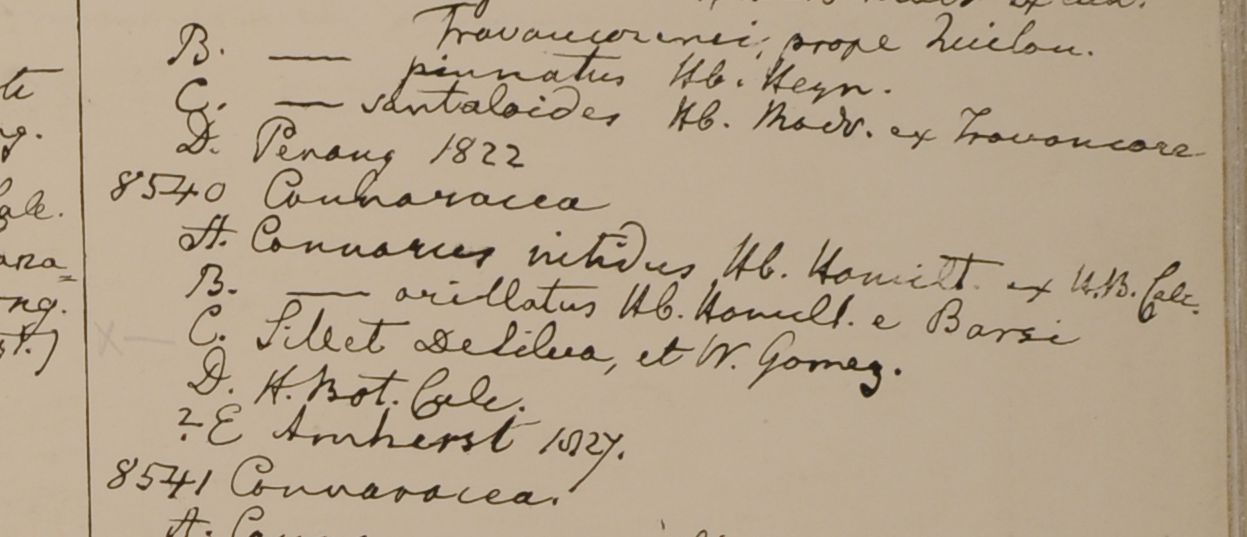 Travancorensi, prope Quilon.
B. — pinnatus Hb. Heyn.
C. — santaloides Hb. Madr. ex Travancore
D. Penang 1822
8540 Connaracea
A. Connarus nitidus Hb. Hamilt. ex H.B. Calc.
B. — arillatus Hb. Hamilt. e Barsi
C. Sillet DeSilva, et W. Gomez.
D. H. Bot. Calc.
? E Amherst 1827.
8541 Connaracea.
te
ng.
Calc.
ara=
ng.